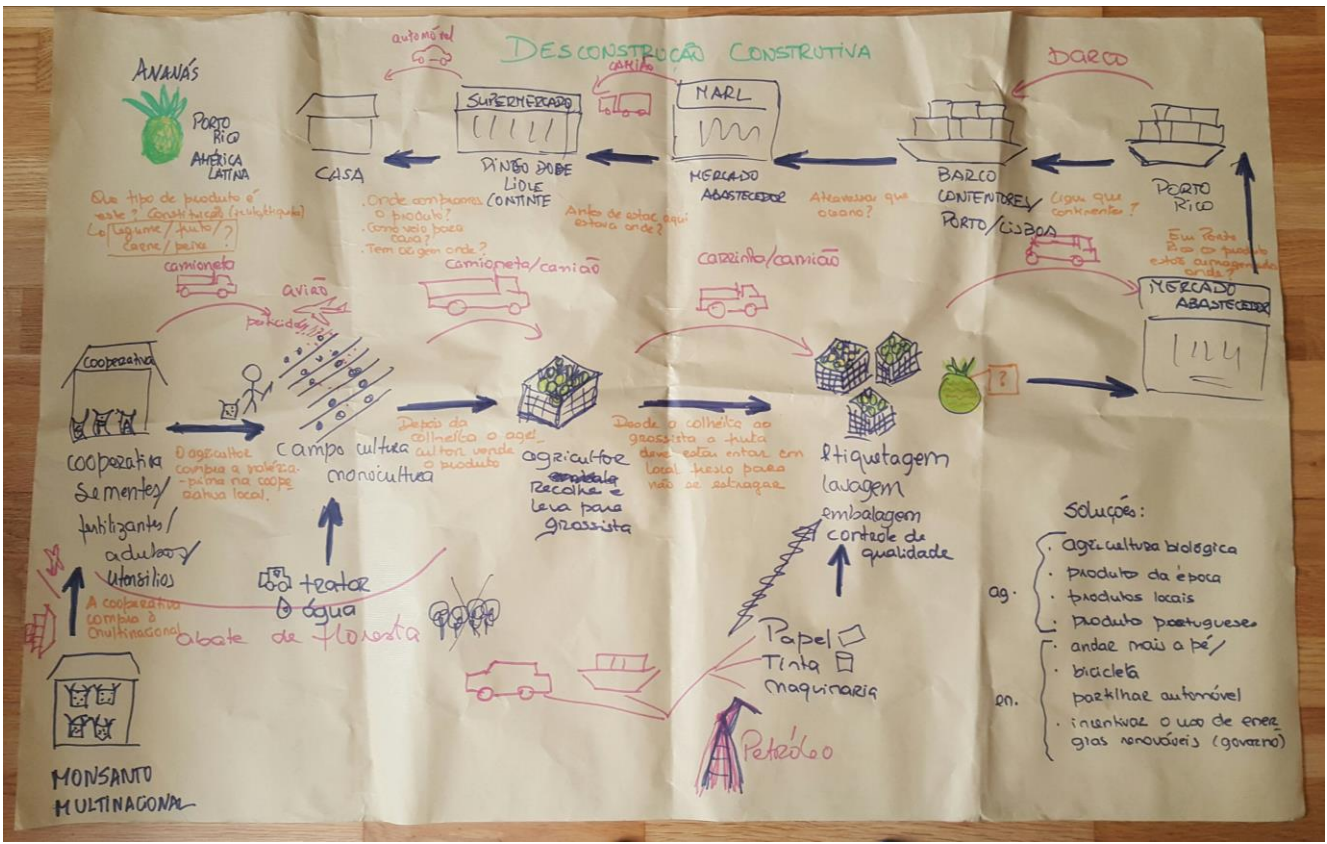 DESCONSTRUÇÃO CONSTRUTIVA
ANANÁS
PORTO
RICO
AMÉRICA
LATINA
automóvel
CAMIÃO
BARCO
CASA
SUPERMERCADO
PINGO DOCE
LIDLE
CONTINTE
MARL
MERCADO
ABASTECEDOR
BARCO
CONTENTORES/
PORTO/LISBOA
PORTO
RICO
Que tipo de produto é
este? Constituição (rótulo, etiqueta)
Lo legume/fruto/?
carne/peixe
. Onde compramos
o produto?
. Como veio para
casa?
. Tem origem onde?
Antes de estar aqui
estava onde?
Atravessar que
oceano?
Liga que
continentes?
Em Porto
Rico os produtos
estão armagenados
onde?
camioneta
avião
pesticidas
camioneta/camião
carrinha/camião
MERCADO
ABASTECEDOR
cooperativa
cooperativa
sementes/
fertilizantes/
adubos/
utensilios
O agricultor
compra a matéria
-prima na coope-
rativa local.
campo cultura
monocultura
Depois da
colheita o agri-
cultor vende
o produto
agricultor
Recolhe e
leva para
grossista
Desde a colheita ao
grossista a fruta
deve estar entar em
local fresco para
não se estragar
?
Etiquetagem
lavagem
embalagem
controle de
qualidade
trator
água
A cooperativa
compra à
multinacional
abate de floresta
Papel
Tinta
maquinaria
Petróleo
MONSANTO
MULTINACONAL
Soluções:
ag.
. agricultura biológica
. produtos da época
. produtos locais
. produto portugueses
en.
. andar mais a pé/
. bicicleta
partilhar automóvel
. incentivar o uso de ener
gias renováveis (governo)